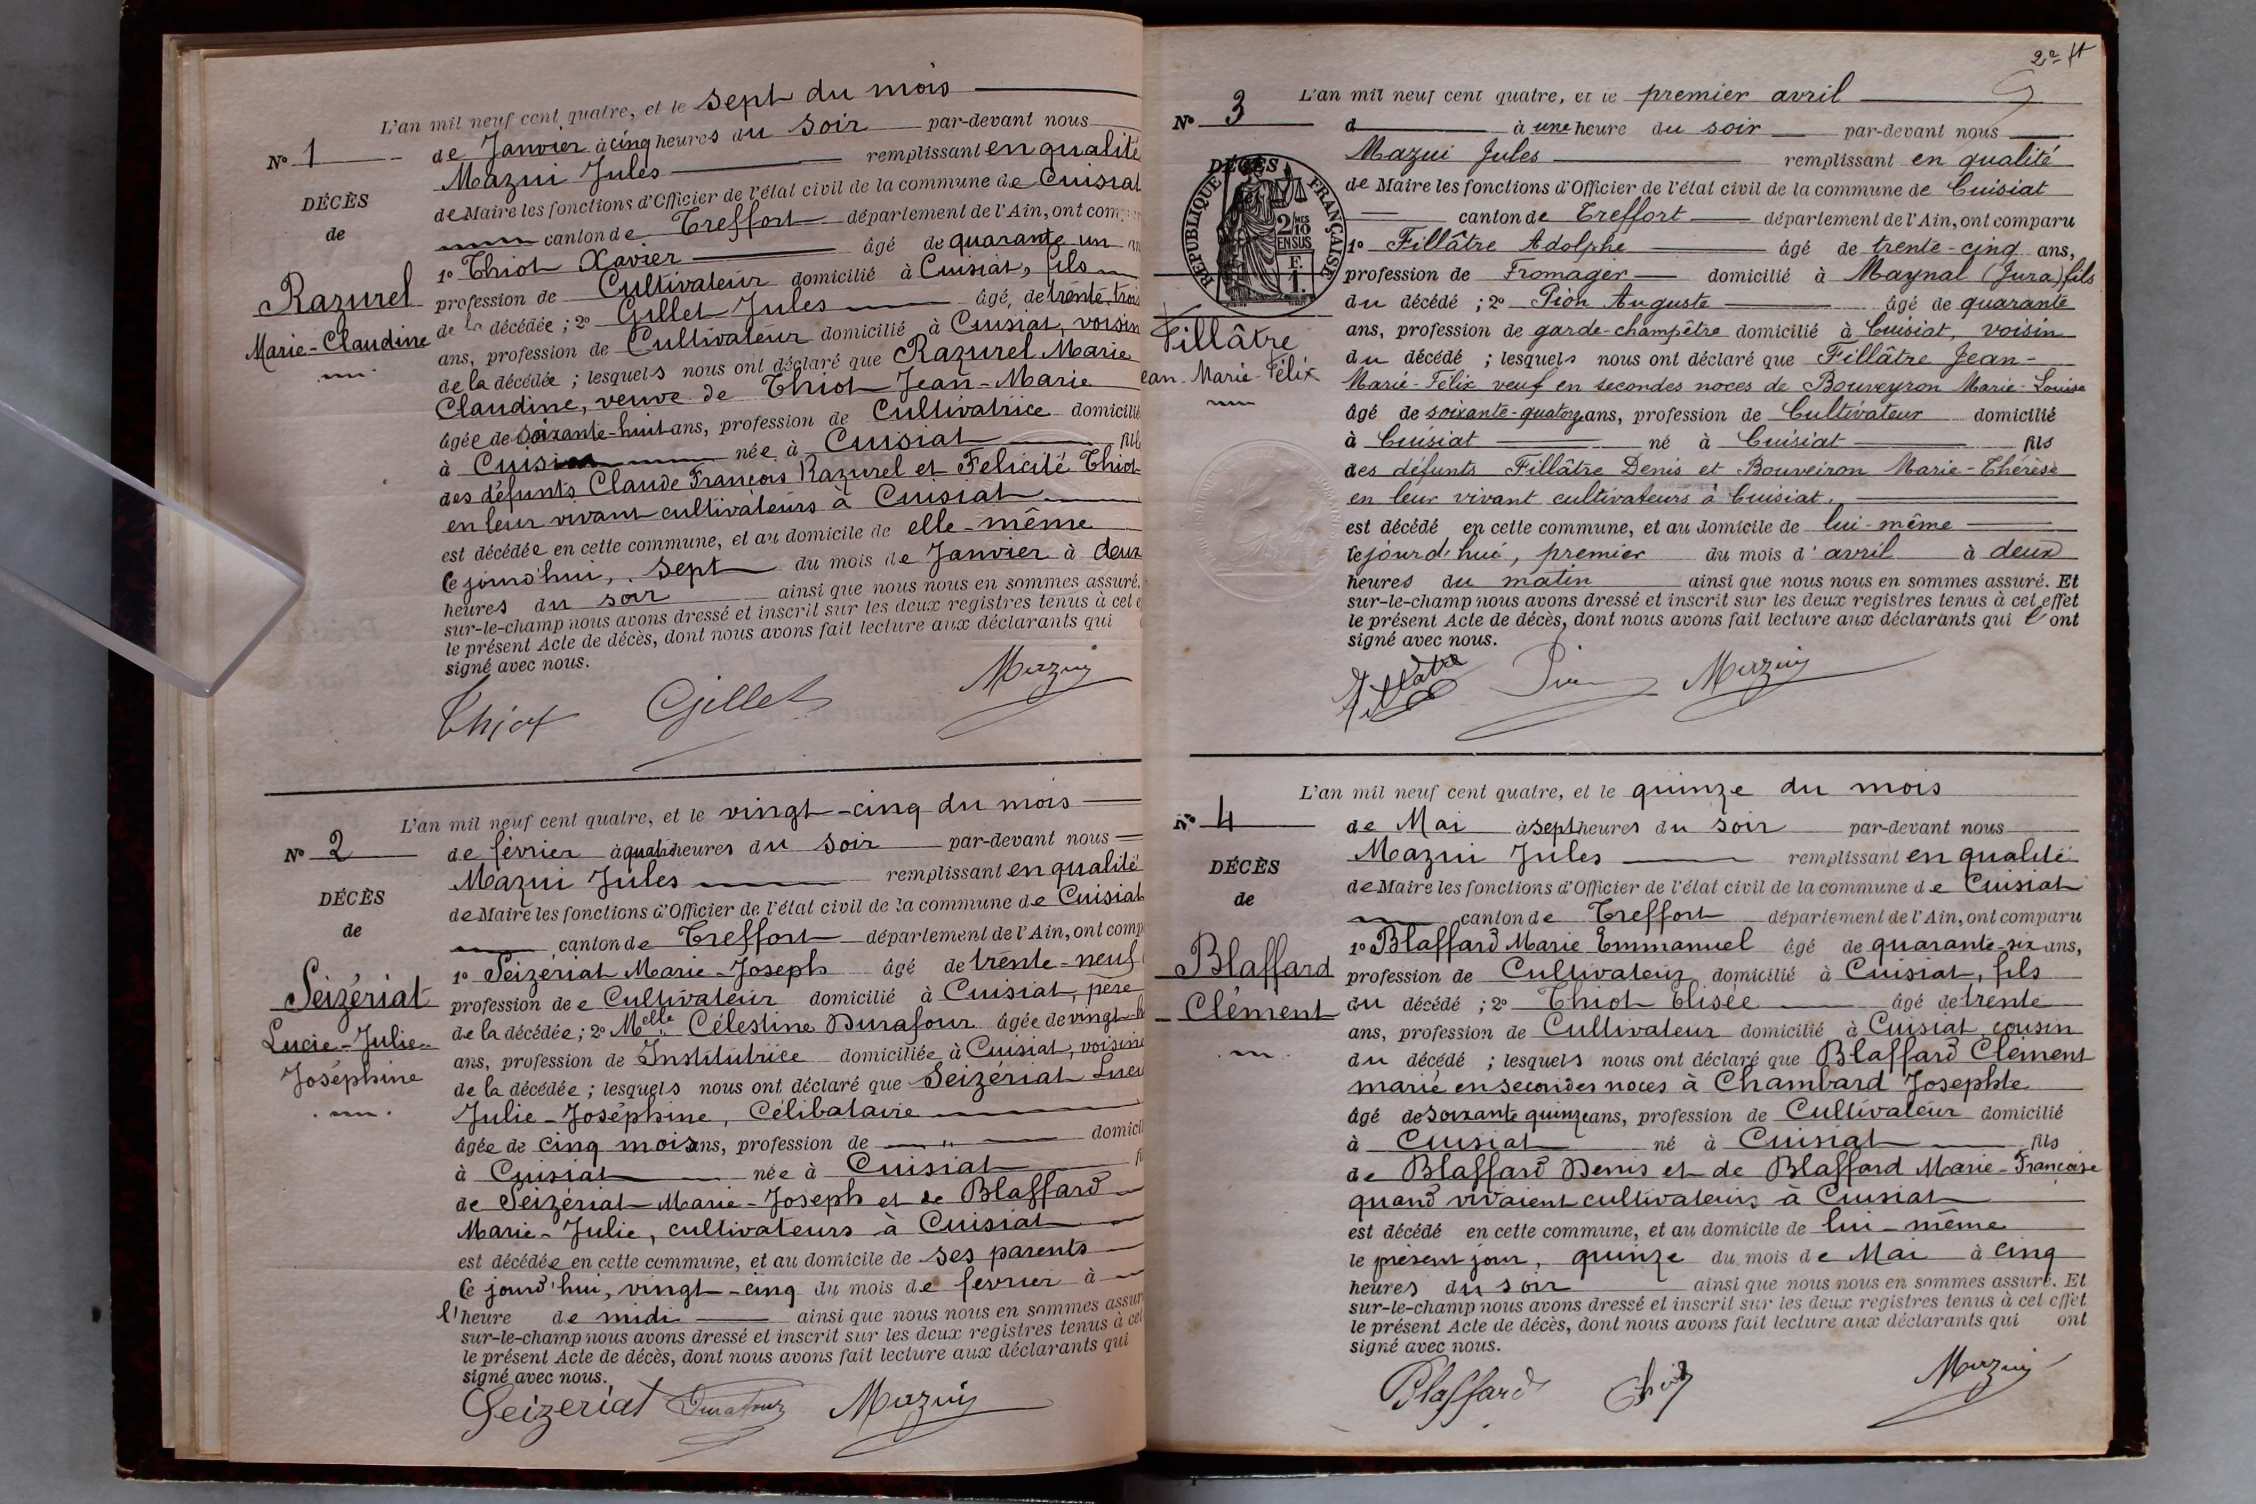 L'an mil neuf cent quatre, et le sept du mois
No 1
de Janvier à cinq heures du soir par-devant nous
Mazui Jules remplissant en qualité
DÉCÈS
de Maire les fonctions d'Officier de l'état civil de la commune de Cuisiat
de
canton de Treffort département de l'Ain, ont
1o Thiot Xavier âgé de quarante un
Razurel
profession de Cultivateur domicilié à Cuisiat, fils
Marie-Claudine
de la décédée ; 2o Gillet Jules âgé de trente-trois
ans, profession de Cultivateur domicilié à Cuisiat, voisin
de la décédée ; lesquels nous ont déclaré que Razurel Marie
Claudine, veuve de Thiot Jean-Marie
âgée de soixante-huit ans, profession de Cultivatrice domicilié
à Cuisiat née à Cuisiat
des défunts Claude François Razurel et Felicité Thiot
en leur vivant cultivateurs à Cuisiat
est décédée en cette commune, et au domicile de elle-même
Ce jourd'hui, sept du mois de Janvier à deux
heures du soir ainsi que nous nous en sommes assuré.
sur-le-champ nous avons dressé et inscrit sur les deux registres tenus à cet
le présent Acte de décès, dont nous avons fait lecture aux déclarants qui
signé avec nous.
Thiot Gillet Mazuy
L'an mil neuf cent quatre, et le vingt-cinq du mois
No 2
de février à quatre heures du soir par-devant nous
Mazui Jules remplissant en qualité
DÉCÈS
de Maire les fonctions d'Officier de l'état civil de la commune de Cuisiat
de
canton de Treffort département de l'Ain, ont
1o Seizériat Marie-Joseph âgé de trente-neuf
Seizériat
profession de Cultivateur domicilié à Cuisiat, père
Lucie-Julie-
de la décédée ; 2o Melle Célestine Durafour âgée de vingt
Joséphine
ans, profession de Institutrice domiciliée à Cuisiat, voisine
de la décédée ; lesquels nous ont déclaré que Seizériat
Julie-Joséphine, Célibataire
âgée de cinq mois ans, profession de "
à Cuisiat née à Cuisiat
de Seizériat Marie-Joseph et de Blaffard
Marie-Julie, cultivateurs à Cuisiat
est décédée en cette commune, et au domicile de ses parents
Ce jourd'hui, vingt-cinq du mois de février à
l'heure de midi ainsi que nous nous en sommes
sur-le-champ nous avons dressé et inscrit sur les deux registres tenus à
le présent Acte de décès, dont nous avons fait lecture aux déclarants qui
signé avec nous.
Seizeriat Durafour Mazuy
L'an mil neuf cent quatre, et le premier avril
No 3
d à une heure du soir par-devant nous
Mazui Jules remplissant en qualité
DÉCÈS
RÉPUBLIQUE FRANÇAISE
2/10 MES
EN SUS
F.
1.
de Maire les fonctions d'Officier de l'état civil de la commune de Cuisiat
canton de Treffort département de l'Ain, ont comparu
1o Fillâtre Adolphe âgé de trente-cinq ans,
profession de Fromager domicilié à Maynal (Jura) fils
du décédé ; 2o Pion Auguste âgé de quarante
Fillâtre
ans, profession de garde-champêtre domicilié à Cuisiat, voisin
du décédé ; lesquels nous ont déclaré que Fillâtre Jean-
ean-Marie-Félix
Marie-Félix veuf en secondes noces de Bouveyron Marie-Louise
âgé de soixante-quatorze ans, profession de Cultivateur domicilié
à Cuisiat né à Cuisiat fils
des défunts Fillâtre Denis et Bouveiron Marie-Thérèse
en leur vivant cultivateurs à Cuisiat.
est décédé en cette commune, et au domicile de lui-même
Cejourd'hui, premier du mois d'avril à deux
heures du matin ainsi que nous nous en sommes assuré. Et
sur-le-champ nous avons dressé et inscrit sur les deux registres tenus à cet effet
le présent Acte de décès, dont nous avons fait lecture aux déclarants qui l'ont
signé avec nous.
Fillâtre Pion Mazuy
L'an mil neuf cent quatre, et le quinze du mois
No 4
de Mai à sept heures du soir par-devant nous
Mazui Jules remplissant en qualité
DÉCÈS
de Maire les fonctions d'Officier de l'état civil de la commune de Cuisiat
de
canton de Treffort département de l'Ain, ont comparu
1o Blaffard Marie Emmanuel âgé de quarante-six ans,
Blaffard
profession de Cultivateur domicilié à Cuisiat, fils
Clément
du décédé ; 2o Thiot Elisée âgé de trente
ans, profession de Cultivateur domicilié à Cuisiat cousin
du décédé ; lesquels nous ont déclaré que Blaffard Clément
marié en secondes noces à Chambard Josephte
âgé de soixante quinze ans, profession de Cultivateur domicilié
à Cuisiat né à Cuisiat fils
de Blaffard Denis et de Blaffard Marie-Francoise
quand vivaient cultivateurs à Cuisiat
est décédé en cette commune, et au domicile de lui-même
le présent jour, quinze du mois de Mai à cinq
heures du soir ainsi que nous nous en sommes assuré. Et
sur-le-champ nous avons dressé et inscrit sur les deux registres tenus à cet effet
le présent Acte de décès, dont nous avons fait lecture aux déclarants qui ont
signé avec nous.
Blaffard Thiot Mazuy